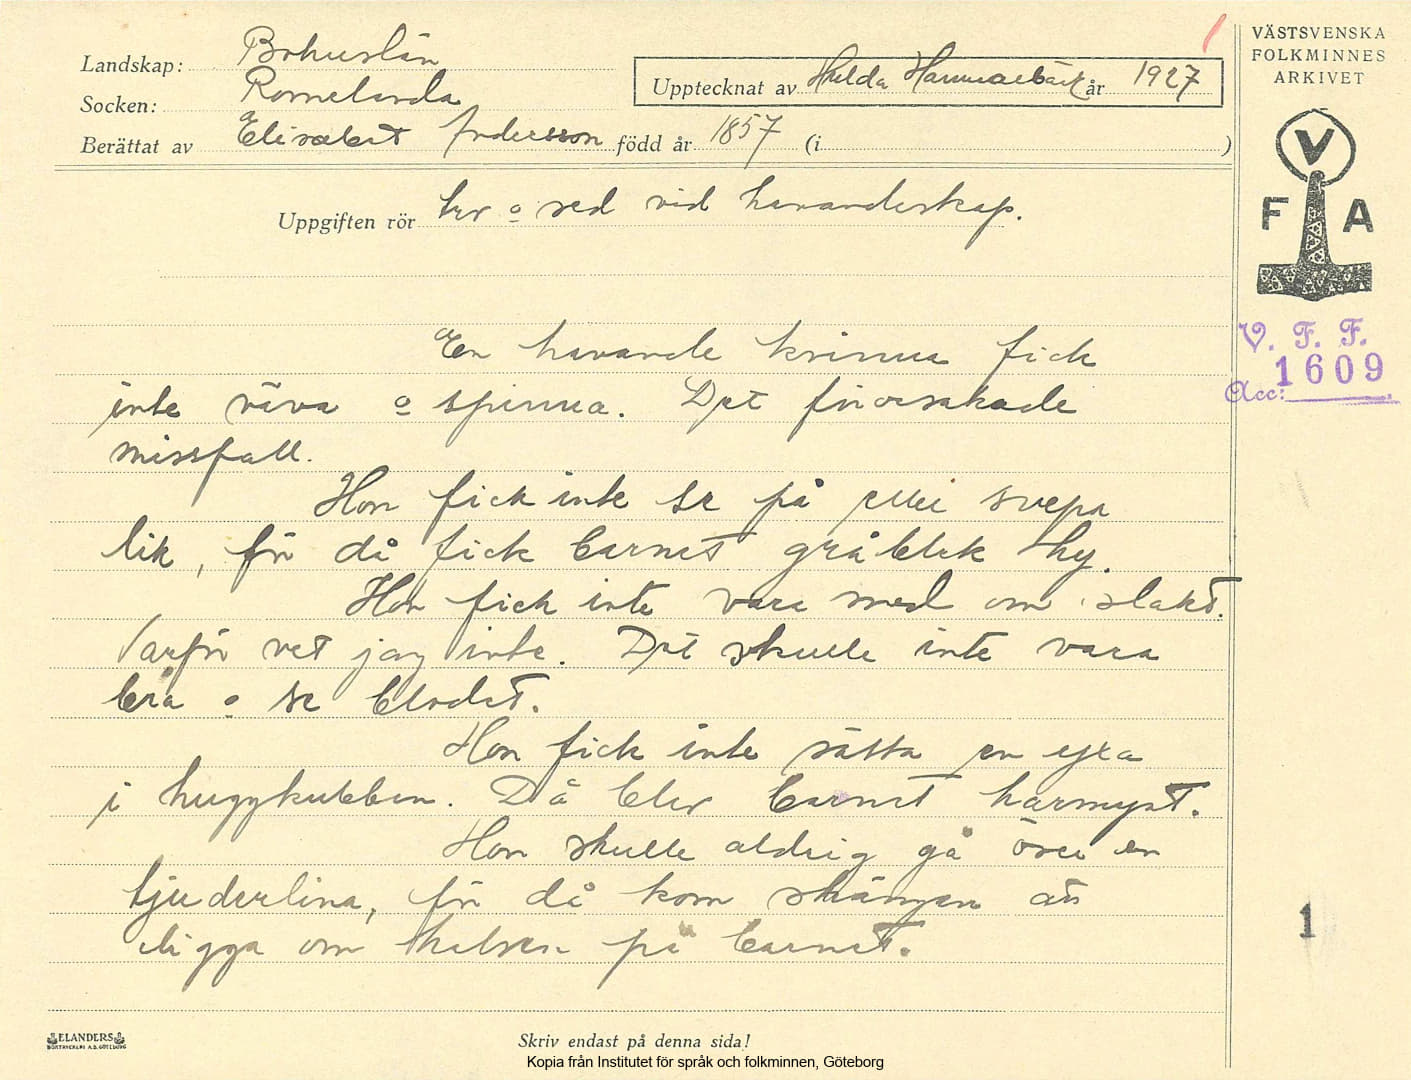 Landskap: Bohuslän
Socken: Romelanda
Upptecknat av Hulda Hammarbäck år 1927
Berättat av Elisabet Andersson född år 1857 (i )
Uppgiften rör tro o sed vid havandeskap.
VÄSTSVENSKA
FOLKMINNES
ARKIVET
V
F A
V. F. F.
Acc: 1609
En havande kvinna fick
inte väva o spinna. Det förorsakade
missfall.
Hon fick inte se på eller svepa
lik, för då fick barnet gråblek hy.
Hon fick inte vara med om slakt.
Varför vet jag inte. Det skulle inte vara
bra o se blodet.
Hon fick inte sätta en yxa
i huggkubben. Då blev barnet harmynt.
Hon skulle aldrig gå över en
tjuderlina, för då kom strängen att
ligga om halsen på barnet.
1
ELANDERS
BOKTRYCKERI A.B. GÖTEBORG
Skriv endast på denna sida!
Kopia från Institutet för språk och folkminnen, Göteborg